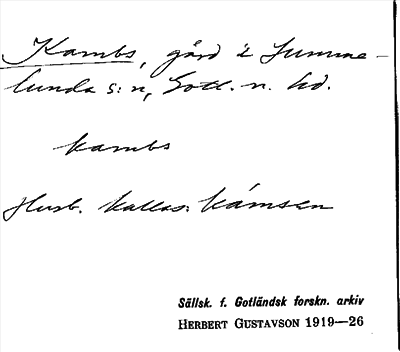 Kambs, gård i Lumme-
lunda s:n, Gotl. n. hd.
kambs
Husb. kallas: kámsen
Sällsk. f. Gotländsk forskn. arkiv
HERBERT GUSTAVSON 1919—26